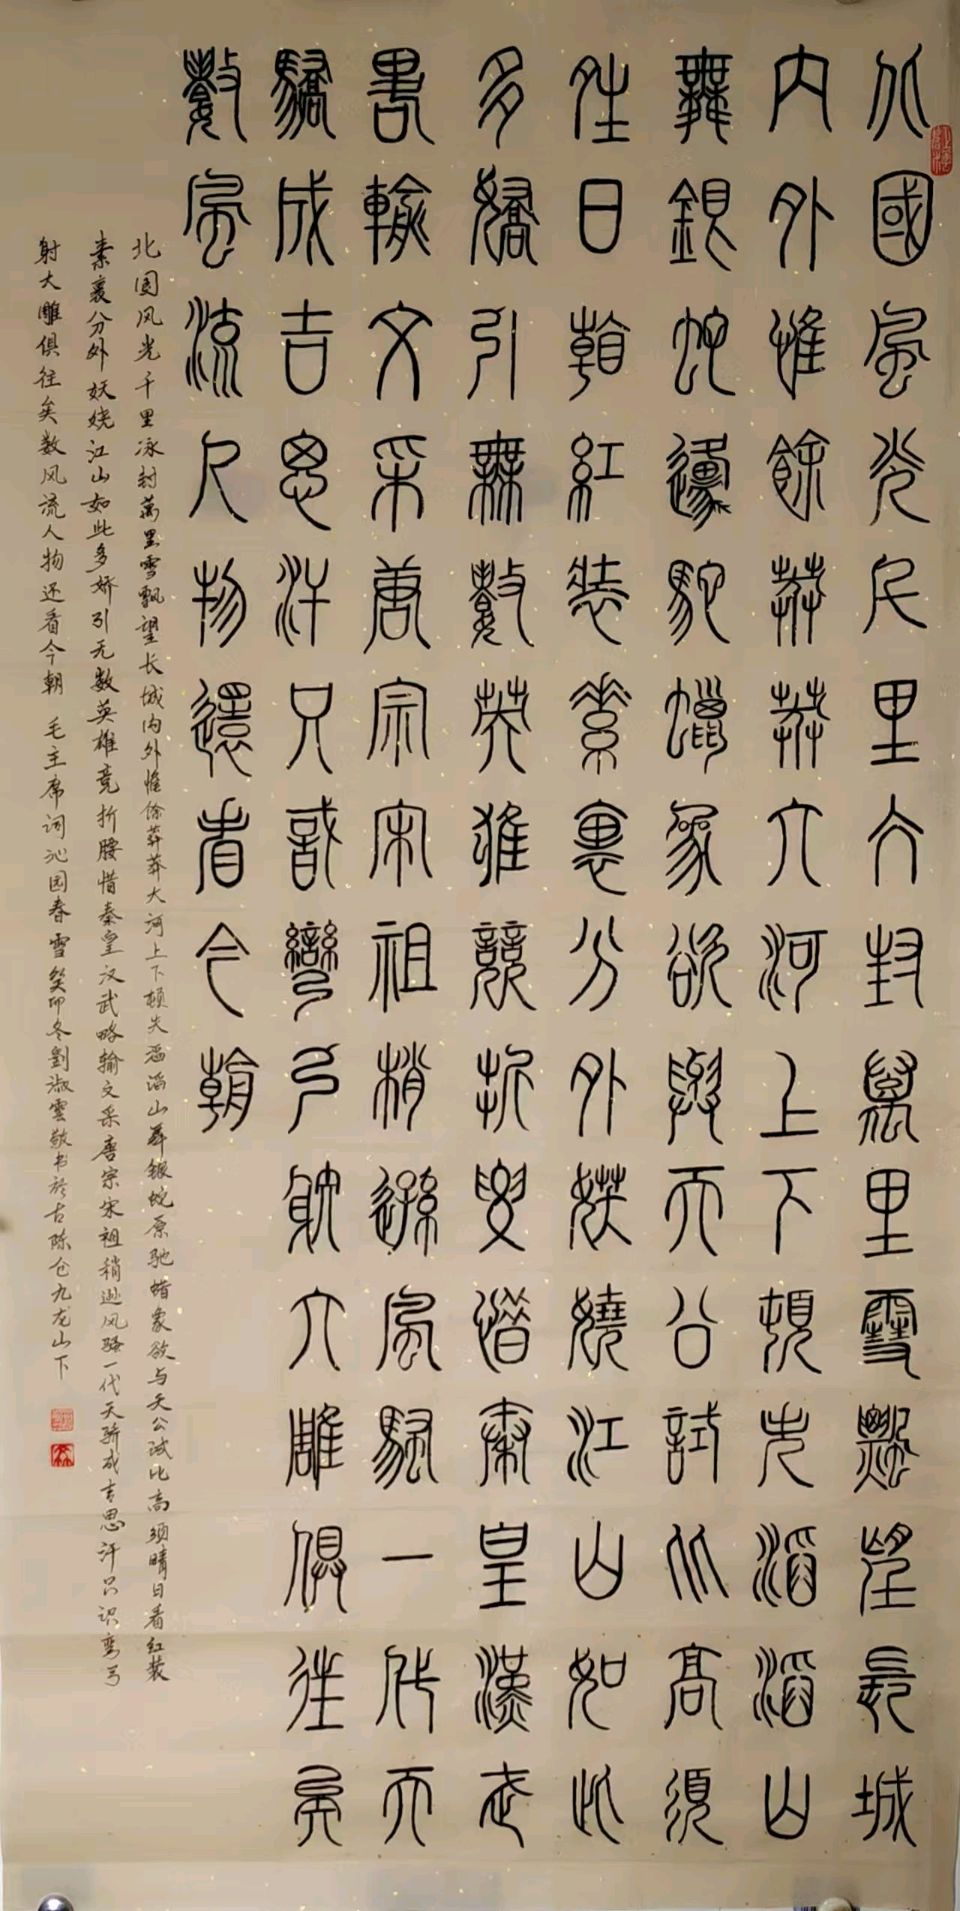 北國風光千里冰封萬里雪飄望長城
内外惟餘莽莽大河上下頓失滔滔山
舞銀蛇邍駝蠟象欲與天公試比高須
晴日看紅裝素裹分外妖嬈江山如此
多嬌引無數英雄競折要惜秦皇漢武
畧輸文采唐宗宋祖稍遜風騷一代天
驕成吉思汗只識彎弓射大雕俱往矣
數風流人物還看今朝
北国风光千里冰封萬里雪飘望长城内外惟馀莽莽大河上下顿失滔滔山舞银蛇原驰蜡象欲与天公试比高须晴日看红装
素裹分外妖娆江山如此多娇引无数英雄竞折腰惜秦皇汉武略输文采唐宗宋祖稍逊风骚一代天骄成吉思汗只识弯弓
射大雕俱往矣数风流人物还看今朝 毛主席词沁园春雪癸卯冬劉淑雲敬书於古陈仓九龙山下